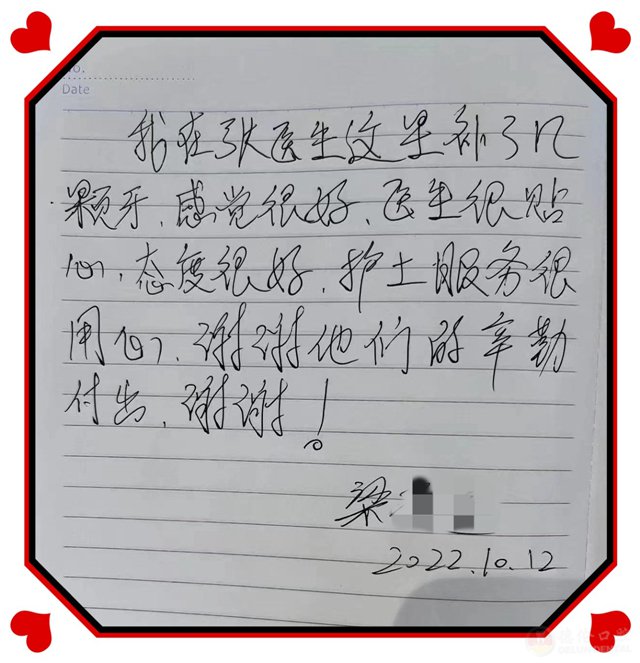 No.
Date
我在张医生这里补了几
颗牙，感觉很好，医生很贴
心，态度很好，护士服务很
用心，谢谢他们的辛勤
付出，谢谢！
梁
2022.10.12